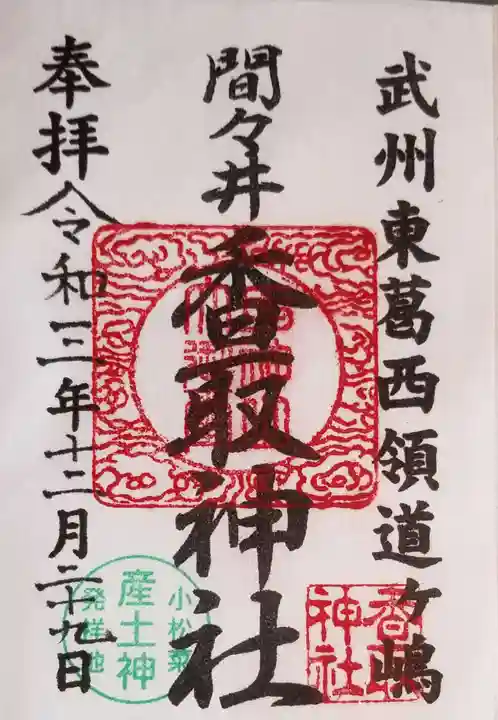 武州東葛西領道ヶ嶋
間々井
香取神社
奉拝令和三年十二月二十九日
香取神社
小松菜
産土神
発祥地